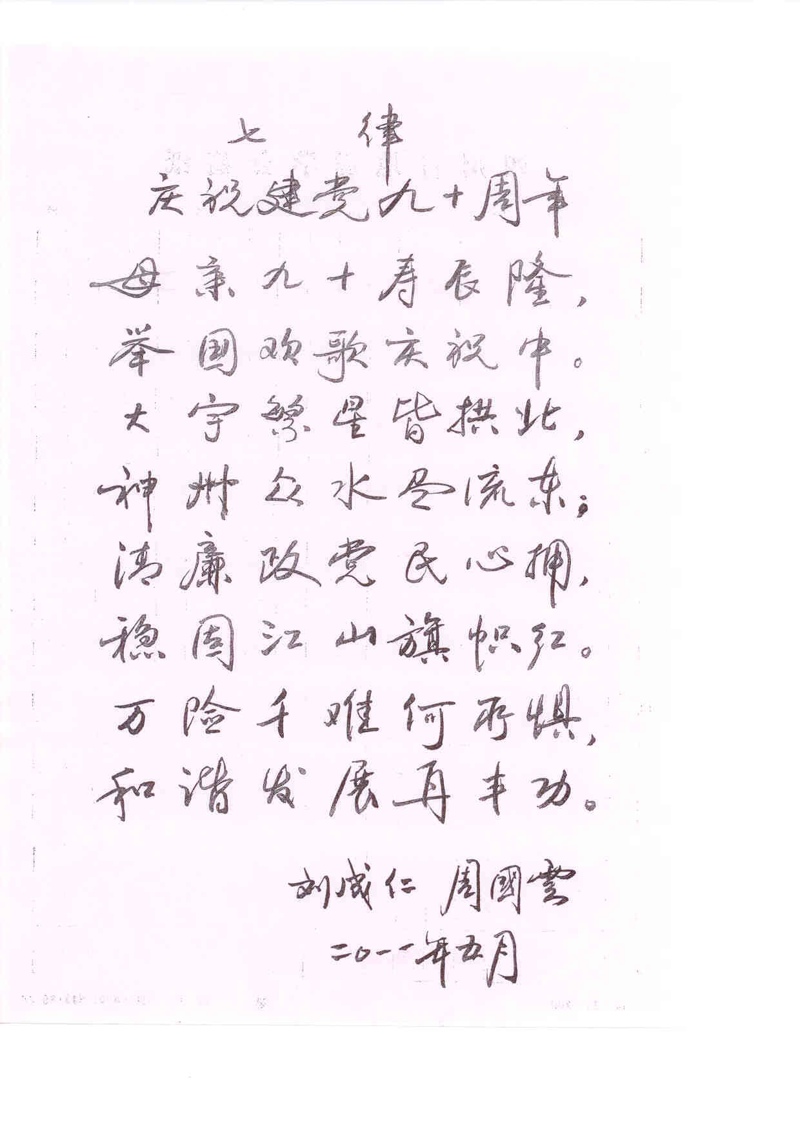 七 律
庆祝建党九十周年
母亲九十寿辰隆，
举国欢歌庆祝中。
大宇繁星皆拱北，
神州众水尽流东；
清廉政党民心拥，
稳固江山旗帜红。
万险千难何所惧，
和谐发展再丰功。
刘成仁 周國雲
二〇一一年五月